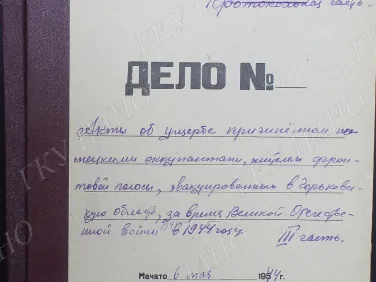 Протокольная часть.
ДЕЛО №
Акты об ущербе причинённом не-
мецкими оккупантами, жителям фрон-
товой полосы, эвакуированным в Горьков-
скую область, за время Великой Отечестве-
нной войны в 1944 году
III часть.
Начато 6 мая 1944г.
ГКУ ЦАНО